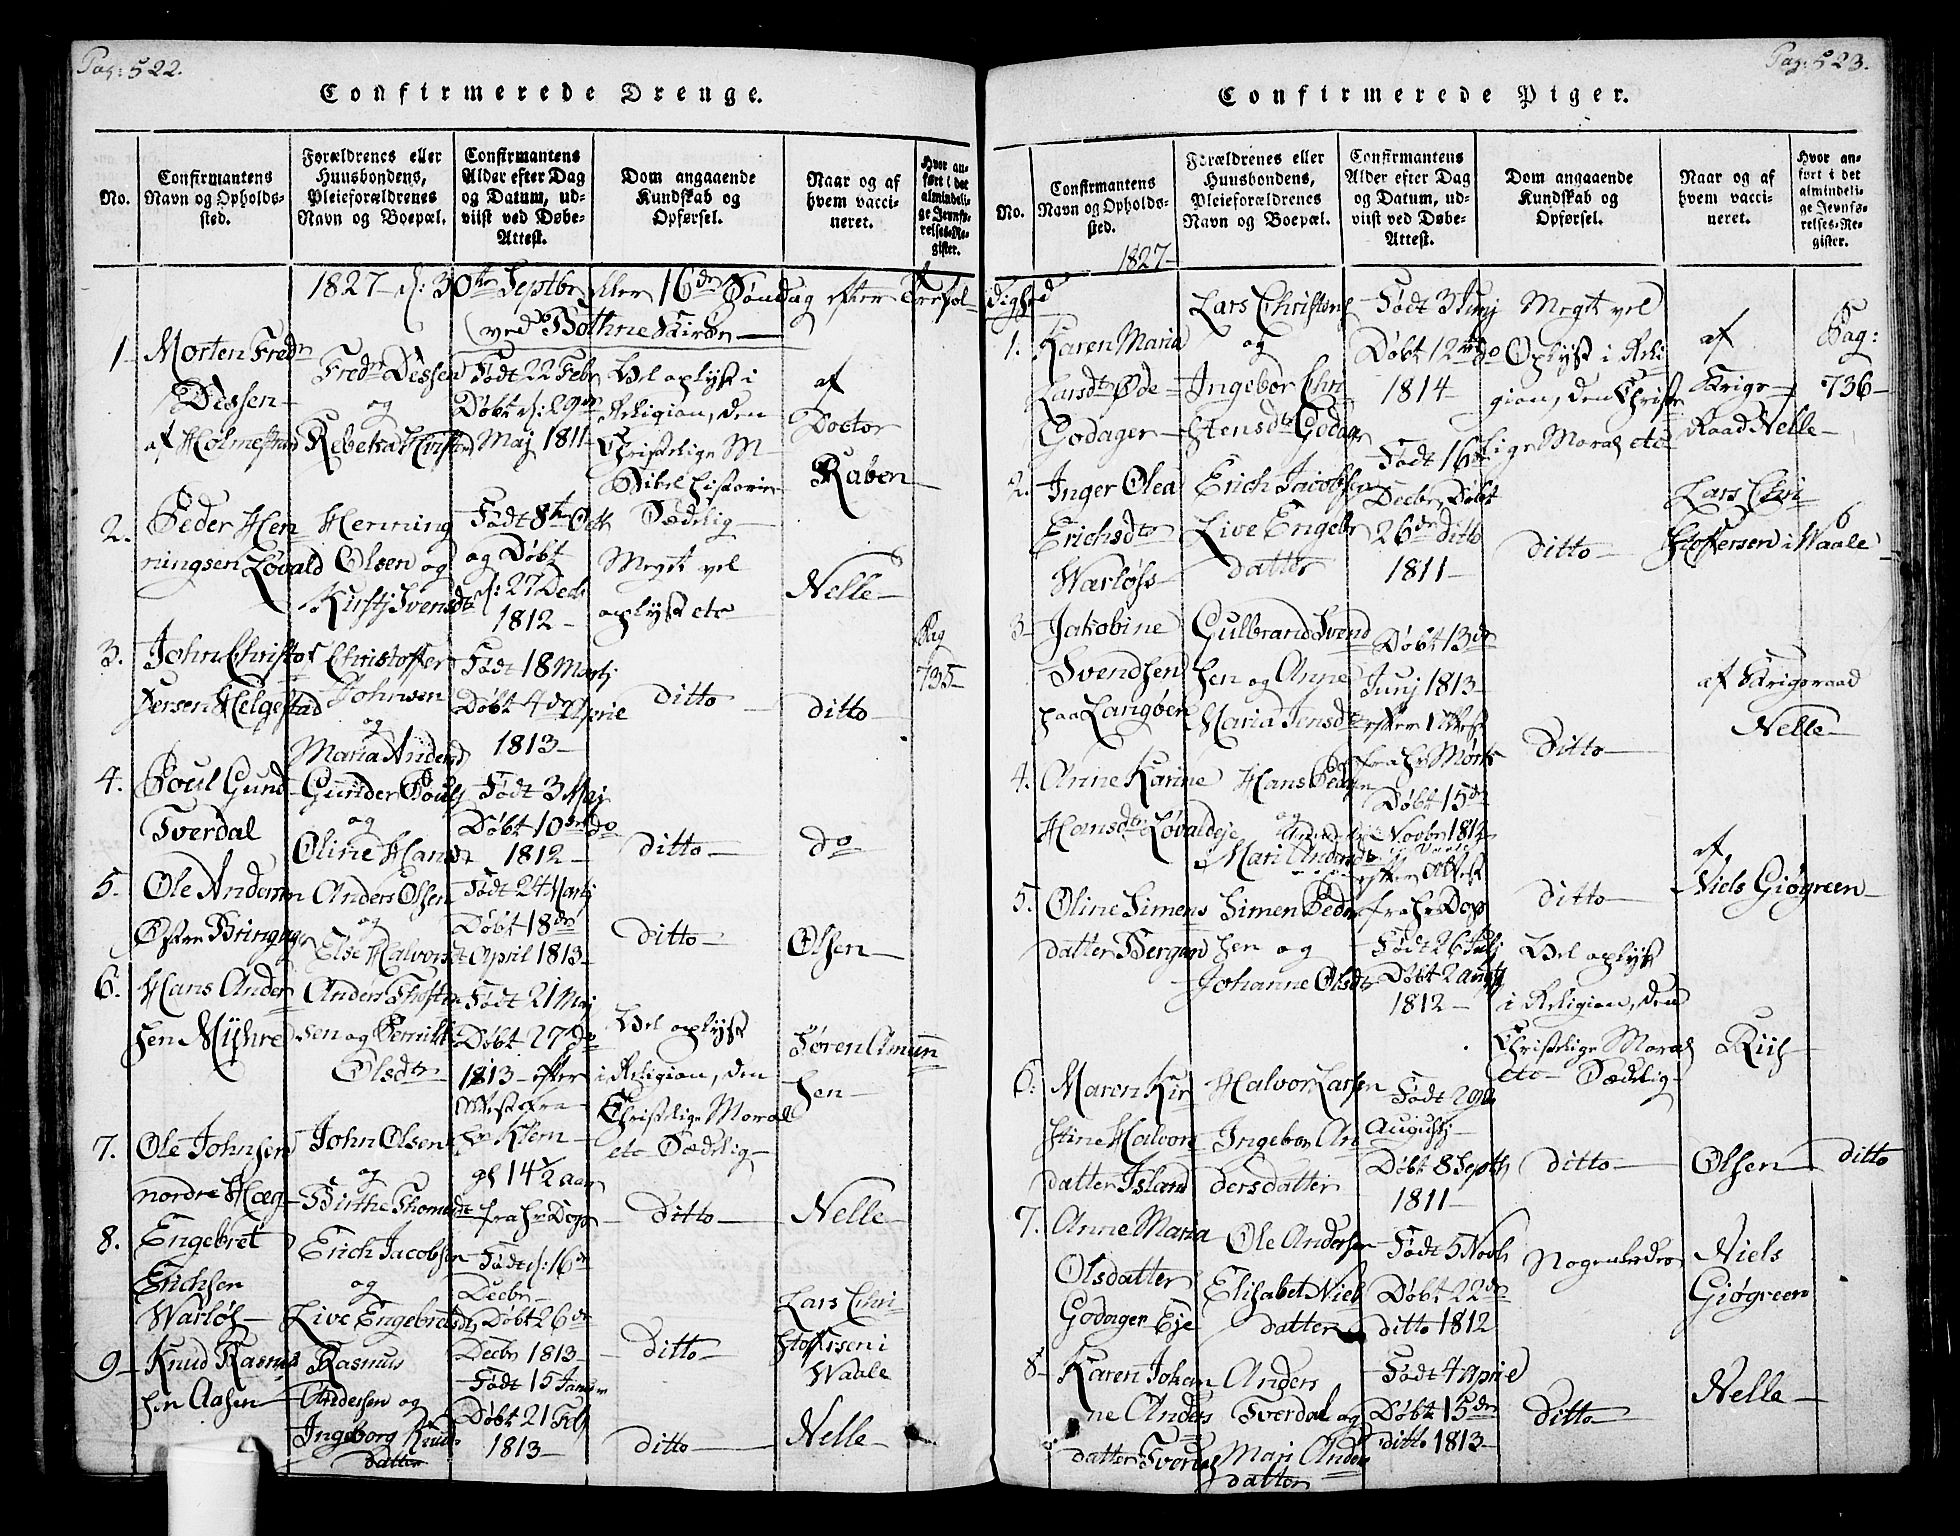 Pag: 522.
Confirmerede Drenge.
No.
Confirmantens
Navn og Opholds-
sted.
Forældrenes eller
Huusbondens,
Pleieforældrenes
Navn og Boepæl.
Confirmantens
Alder efter Dag
og Datum, ud-
viist ved Døbe-
Attest.
Dom angaaende
Kundskab og
Opførsel.
Naar og af
hvem vacci-
neret.
Hvor an-
ført i det
almindeli-
ge Jevnfø-
relses-Re-
gister.
1827 d: 30te Septbr eller 16de Søndag efter Trefol-
(ved Bothne Kirke
1
Morten Fredr
Dissen
af Holmestrand
Fredr Dessen
og
Rebekka
Født 22 Febr
Døbt d: 29
Maj 1811
Vel oplyst i
Religion, den
Christelige M-
Bibelhistorie
Sædelig
af
Doctor
Raben
2.
Peder Hen
ningsen Løvald
Henning
Olsen og
Kirsti Svensdtr
Født 8de Octb
og Døbt
d: 27 Decb
1812
Meget vel
oplyst etc
Nelle
3.
John Christof
fersen Helgestad
Christoffer
Johnsen
og
Maria Andersd
Født 18 Martj
Døbt 4de Aprie
1813
ditto
ditto
Pag
735
4.
Poul Gund
Tverdal
Gunder Pouls
og
Oline Hansd
Født 3 Maj
Døbt 10de do
1812
ditto
do
5.
Ole Andersen
Østre Bringag
Anders Olsen
og
Else Halvorsd
Født 24 Martj
Døbt 18de
April 1813
ditto
Olsen
6.
Hans Ander
sen Myhre
Anders Thoste
sen og Berritte
Olsdtr
Født 21 Maj
Døbt 27 do
1813 efter
Attest fra
Hr Klem
Vel oplyst
i Religion, den
Christelige Moral
etc Sædelig
Søren Amun
sen
7.
Ole Johnsen
nordre Hæg
John Olsen
og
Birthe Thomasdt
gl 14½ aar
fra Hr Dop
Ditto
Nelle
8.
Engebret
Erichsen
Warløs
Erich Jacobsen
og
Live Engebretsdt
Født d: 16de
Decbr
Døbt 26de
Decbr 1813
Ditto
Lars Chri
stoffersen i
Waale
9
Knud Rasmus
sen Aasen
Rasmus
Andersen og
Ingeborg Knuds
datter
Født 15 Janua
Døbt 21 Feb
1813
ditto
Nelle
Pag: 523.
Confirmerede Piger.
No.
Confirmantens
Navn og Opholds-
sted.
1827
Forældrenes eller
Huusbondens,
Pleieforældrenes
Navn og Boepæl.
Confirmantens
Alder efter Dag
og Datum, ud-
viist ved Døbe-
Attest.
Dom angaaende
Kundskab og
Opførsel.
Naar og af
hvem vacci-
neret.
Hvor an-
ført i det
almindeli-
ge Jevnfø-
relses-Re-
gister.
dighed
1.
Karen Maria
Larsdtr Øde
Godager
Lars Christens
og
Ingebor Chri
stensdtr Godager
Født 3 Junj
Døbt 12te do
1814
Megt vel
Oplyst i Reli
gion, den Christe
lige Moral etc
af
Krigs-
Raad Nelle
Pag:
736
2.
Inger Olea
Erichsdtr
Warløss
Erich Jacobsen
Live Engebr
datter
Født 16de
Decbr Døbt
26de ditto
1811
ditto
Lars Chri
stoffersen i Waale
3
Jakobine
Svendsen
paa Langøen
Gulbrand Svend
sen og Anne
Maria Jensdtr
Døbt 13de
Junj 1813
efter Attest
fra Hr Mørk
Ditto
af Krigsraad
Nelle
4.
Anne Karine
Hansdtr Løvaldeje
Hans Peders
og
Mari Andersdt
Døbt 15de
Novbr 1812
efter Attest
fra Hr Dop
ditto
af
Niels Giøgreen
5.
Oline Simens
datter Bergan
Simen Peder
sen og
Johanne Olsdtr
Født 26 Julj
Døbt 2 augtj
1812
Vel oplyst
i Religion, den
Christelige Moral
etc Sædelig
Riis
6.
Maren Kir
stine Halvor
datter Island
Halvor Larsen
Ingebor An
dersdatter
Født 29de
Augustj
Døbt 8 Septb
1811
ditto
Olsen
ditto
7.
Anne Maria
Olsdatter
Godager Eje
Ole Andersen
Elisabet Niels
datter
Født 5 Novb
Døbt 22de
ditto 1812
Niels
Giøgreen
8
Karen Johan
ne Anders
datter Tverdal
Anders
Tverdal og
Mari Anders
datter
Født 4 Aprie
Døbt 15de
ditto 1813
ditto
Nelle